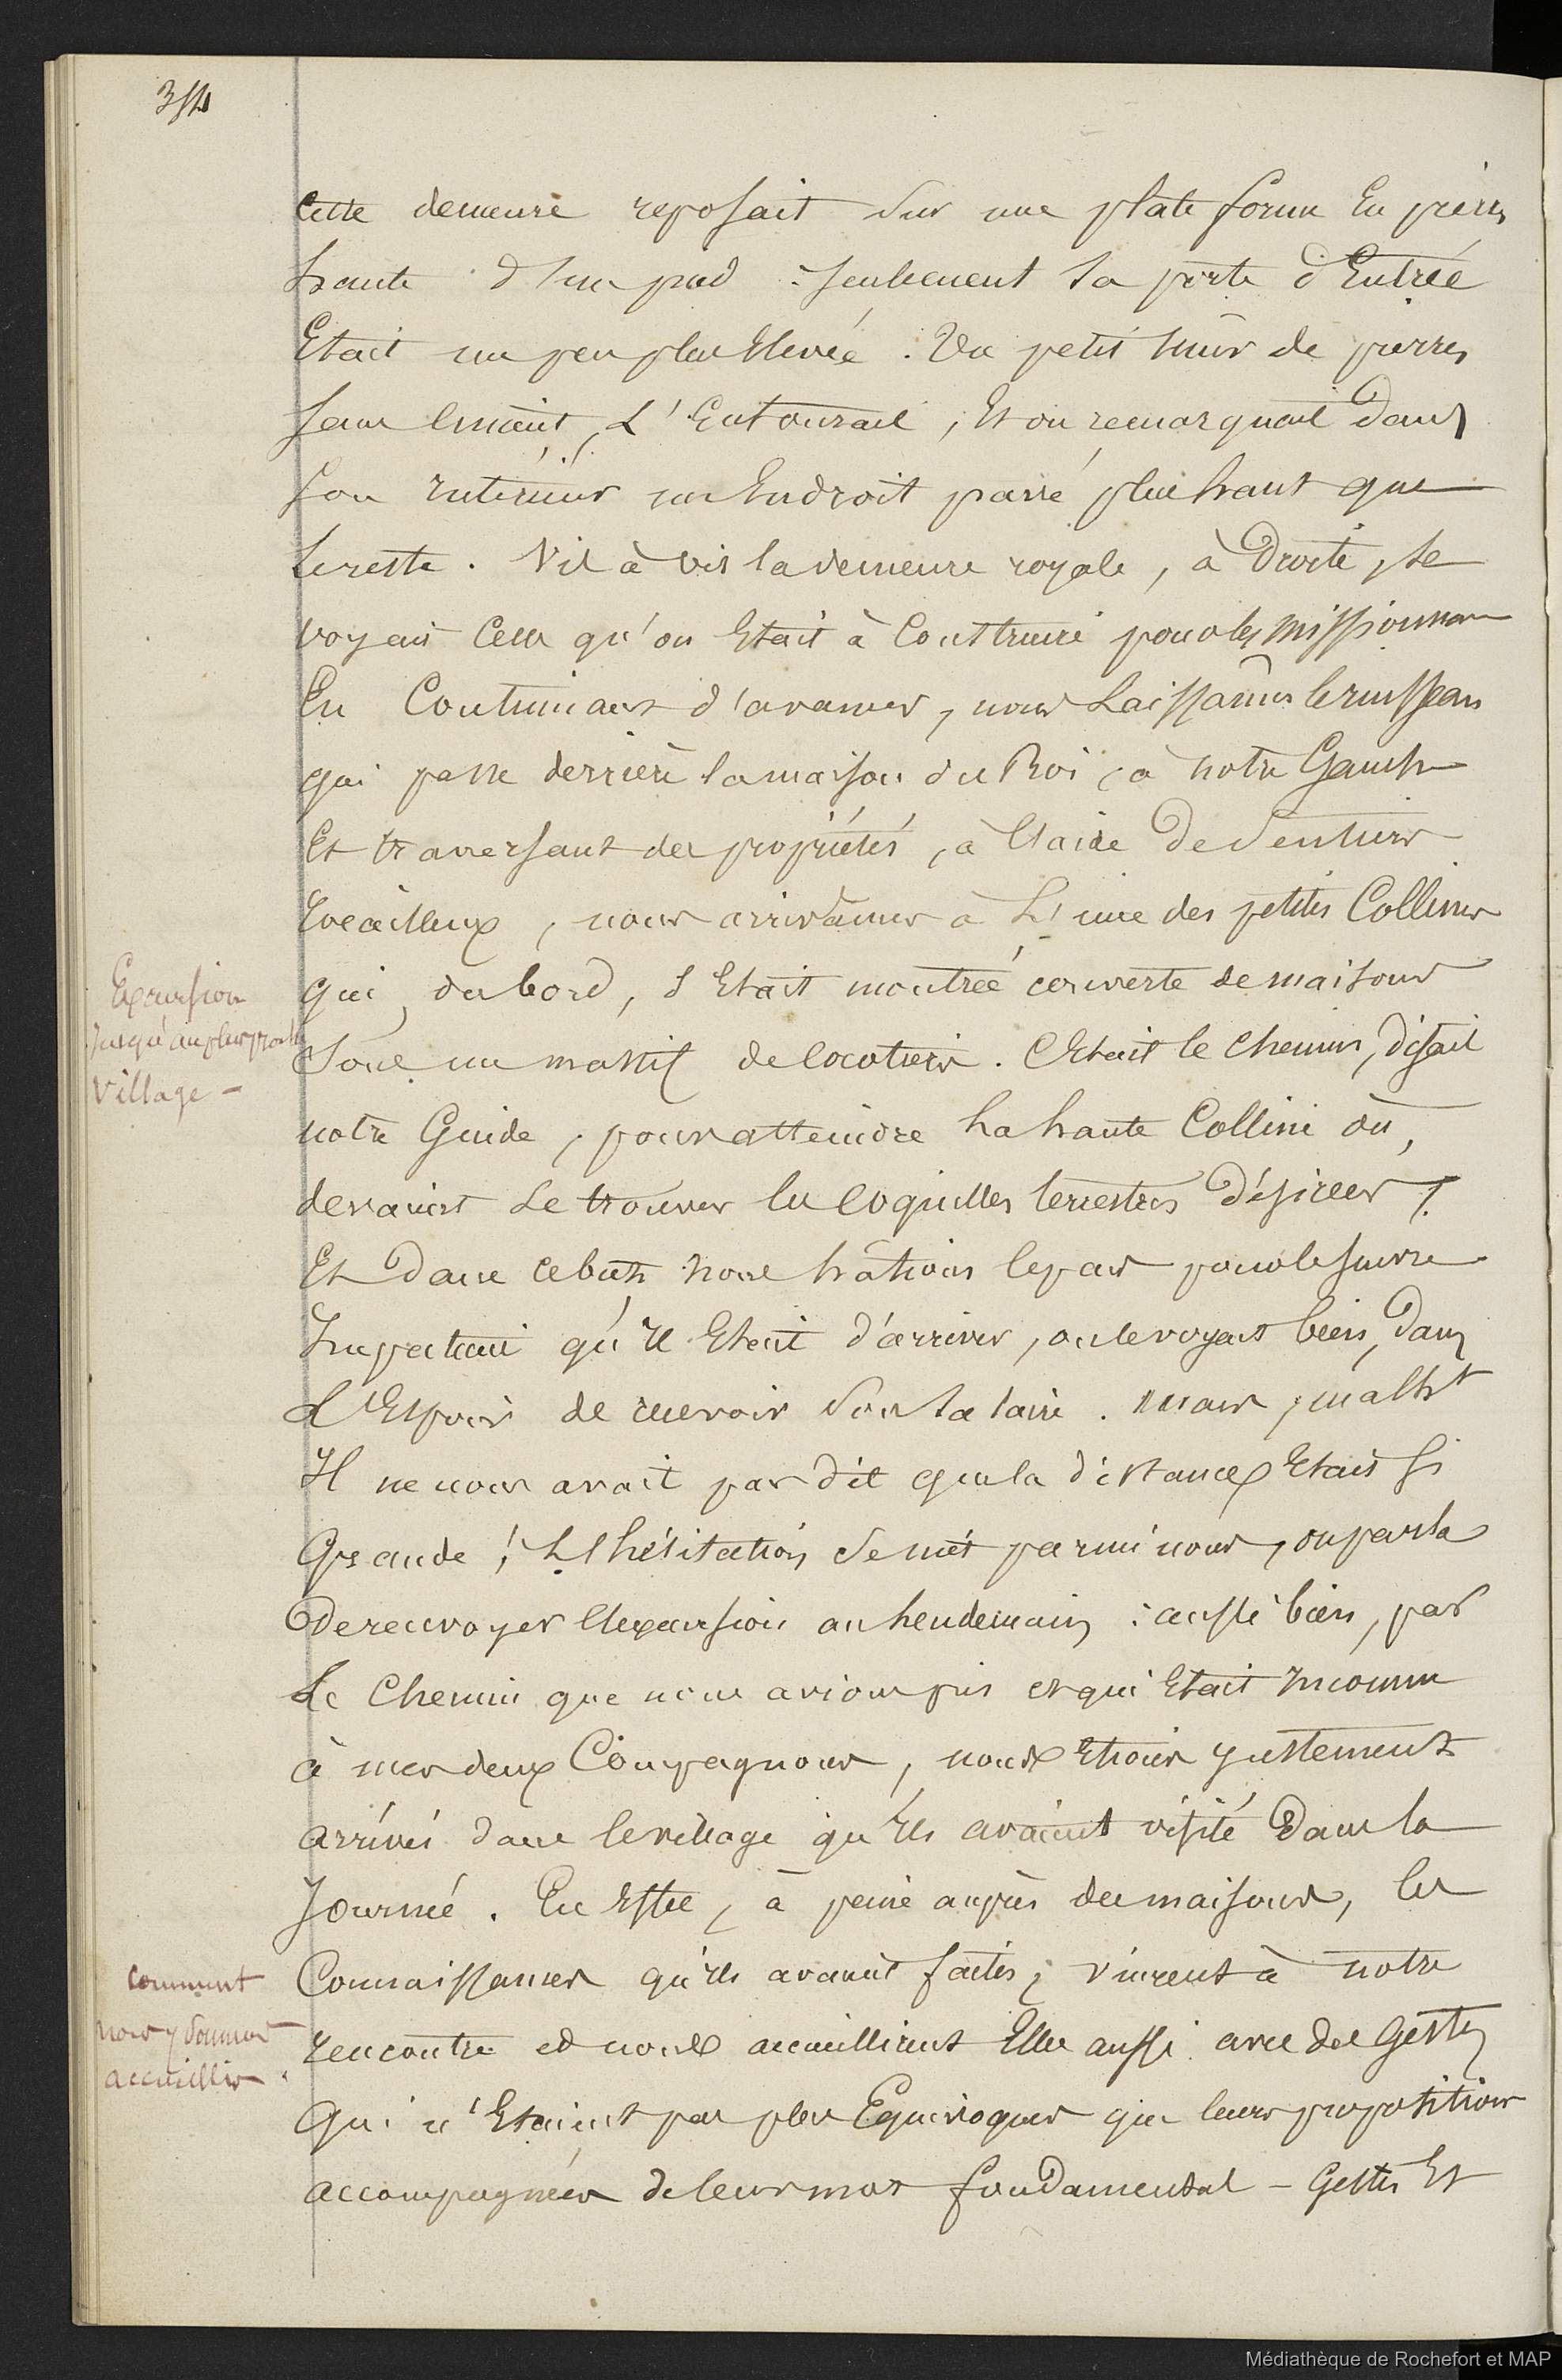 354
cette demeure reposait sur une plate forme En pierres
haute d'un pied : seulement la porte d'Entrée
Etait un peu plus Elevée. Un petit mur de pierres
sans ciment, L'Entourait, Et on remarquait Dans
son intérieur un Endroit pavé plus haut que
le reste. Vis à vis la demeure royale, à Droite, se
voyait Celle qu'on Etait à Construire pour les missionnaires
En Continuant d'avancer, nous Laissâmes le ruisseau
qui passe derrière la maison du Roi, à notre Gauche
Et traversant des propriétés, à l'aide De Sentiers
rocailleux, nous arrivâmes à L'une des petites Collines
Excursion
jusqu'au plus proche
Village -
qui, d'abord, s'Etait montrée couverte de maisons
Sous un massif de Cocotiers. C'Etait le Chemin, disait
notre Guide, pour atteindre La haute Colline où,
devaient Se trouver les Coquilles terrestres Désirées ;
Et Dans ce but nous hâtions le pas pour le suivre
Impatient qu'il Etait d'arriver, on le voyait bien, Dans
L'Espoir de recevoir Son Salaire. mais, ,
Il ne nous avait pas dit que la distance Etait si
Grande ! L'hésitation se mit parmi nous, on parla
De renvoyer l'Excursion au Lendemain : aussi bien, par
Le Chemin que nous avions pris et qui Etait Inconnu
à mes deux Compagnons, nous Etions justement
arrivés dans le village qu'Ils avaient visité Dans la
Journée. En Effet, à peine auprès des maisons, les
comment
nous y sommes
accueillis.
Connaissances qu'ils avaient faites, vinrent à notre
rencontre et nous accueillirent Elles aussi avec des Gestes
Qui n'Etaient pas plus Equivoques que leurs propositions
accompagnées de leur mot fonDamental - Gestes Et
Médiathèque de Rochefort et MAP